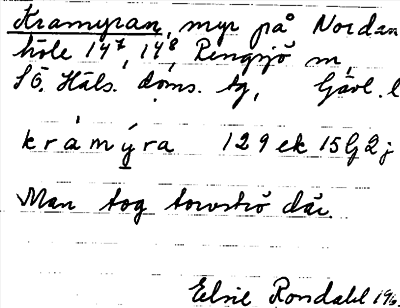 Kramyran, myr på Nordan
höle 14⁷, 14⁸, Rengsjö sn,
SÖ. Häls. doms. tg, Gävl. l
kramýra 129 ek 15 G 2 j
Man tog torvströ där.
Elsie Rosdahl 196